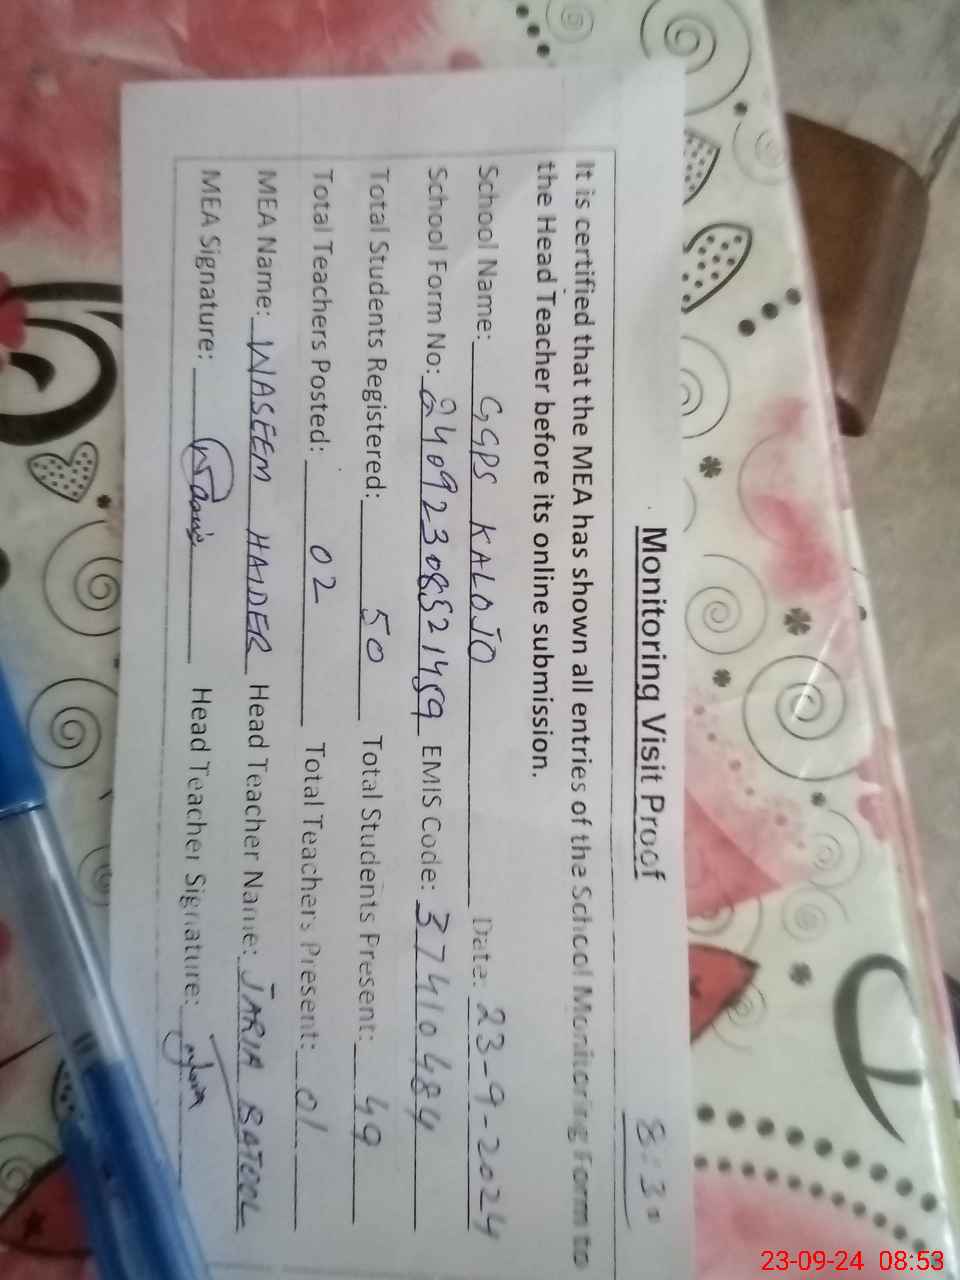 8:30
Monitoring Visit Proof
It is certified that the MEA has shown all entries of the School Monitoring Form to
the Head Teacher before its online submission.
School Name: GGPS KALOJO Date: 23-9-2024
School Form No: 24092308521459 EMIS Code: 37410484
Total Students Registered: 50 Total Students Present: 49
Total Teachers Posted: 02 Total Teachers Present: 01
MEA Name: WASEEM HAIDER Head Teacher Name: JARIA BATOOL
MEA Signature: Head Teacher Signature:
23-09-24 08:53